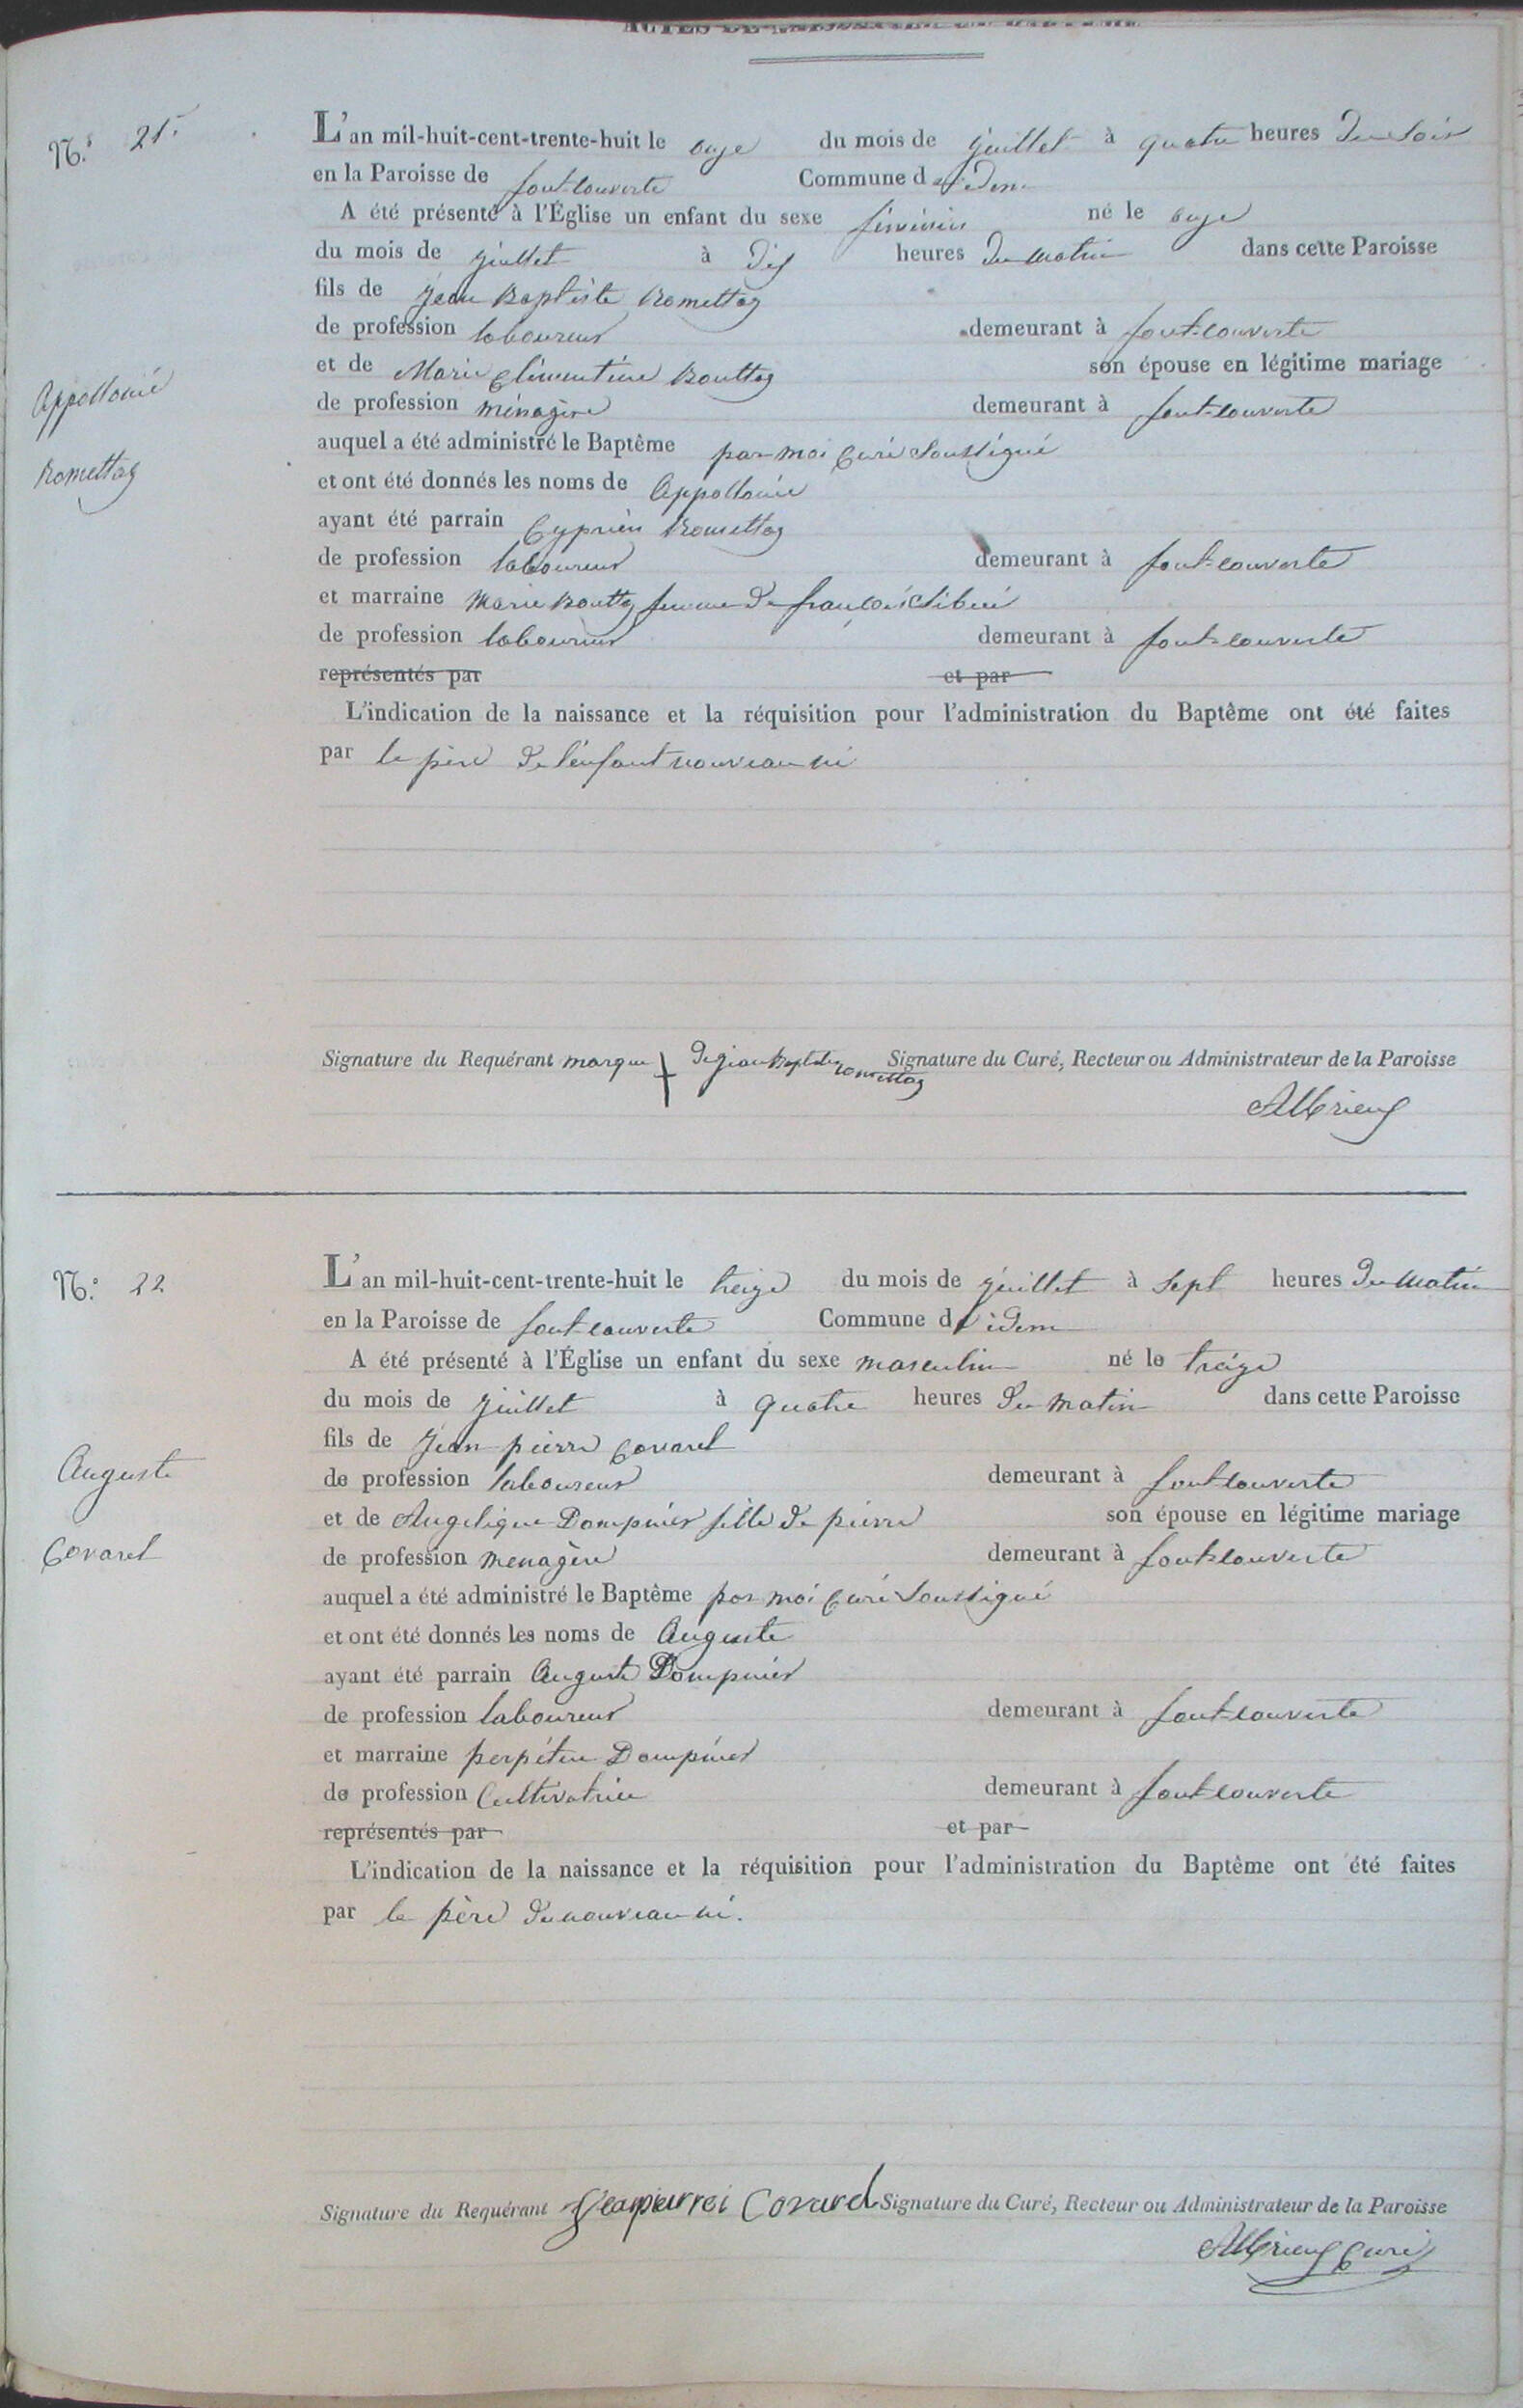 ACTES DE NAISSANCE ET BAPTÊME
N.° 21.
L'an mil-huit-cent-trente-huit le onze du mois de juillet à quatre heures du soir
en la Paroisse de fontcouverte Commune d idem
A été présenté à l'Église un enfant du sexe féminin né le onze
du mois de juillet à dix heures du matin dans cette Paroisse
fils de jean Baptiste Romettaz
de profession laboureur demeurant à font-couverte
et de Marie Clémentine Bouttaz son épouse en légitime mariage
de profession ménagère demeurant à font-couverte
Appollonie
Romettaz
auquel a été administré le Baptême par moi Curé Soussigné
et ont été donnés les noms de Appollonie
ayant été parrain Cyprien Romettaz
de profession laboureur demeurant à font-couverte
et marraine Marie Bouttaz femme de françois
de profession laboureur demeurant à font-couverte
représentés par et par
L'indication de la naissance et la réquisition pour l'administration du Baptême ont été faites
par le père de l'enfant nouveau né
Signature du Requérant marque de jean Baptiste Romettaz Signature du Curé, Recteur ou Administrateur de la Paroisse
Albrieux
N.° 22
L'an mil-huit-cent-trente-huit le treize du mois de juillet à sept heures du matin
en la Paroisse de font-couverte Commune d idem
A été présenté à l'Église un enfant du sexe masculin né le treize
du mois de juillet à quatre heures du matin dans cette Paroisse
fils de jean pierre Covarel
de profession laboureur demeurant à fontcouverte
et de Angelique Dompnier fille de pierre son épouse en légitime mariage
de profession menagère demeurant à font-couverte
Auguste
Covarel
auquel a été administré le Baptême par moi Curé Soussigné
et ont été donnés les noms de Auguste
ayant été parrain Auguste Dompnier
de profession laboureur demeurant à font-couverte
et marraine perpétue Dompnier
de profession Cultivatrice demeurant à font-couverte
représentés par et par
L'indication de la naissance et la réquisition pour l'administration du Baptême ont été faites
par le père du nouveau né.
Signature du Requérant Jeanpierrei Covarel Signature du Curé, Recteur ou Administrateur de la Paroisse
Albrieux Curé